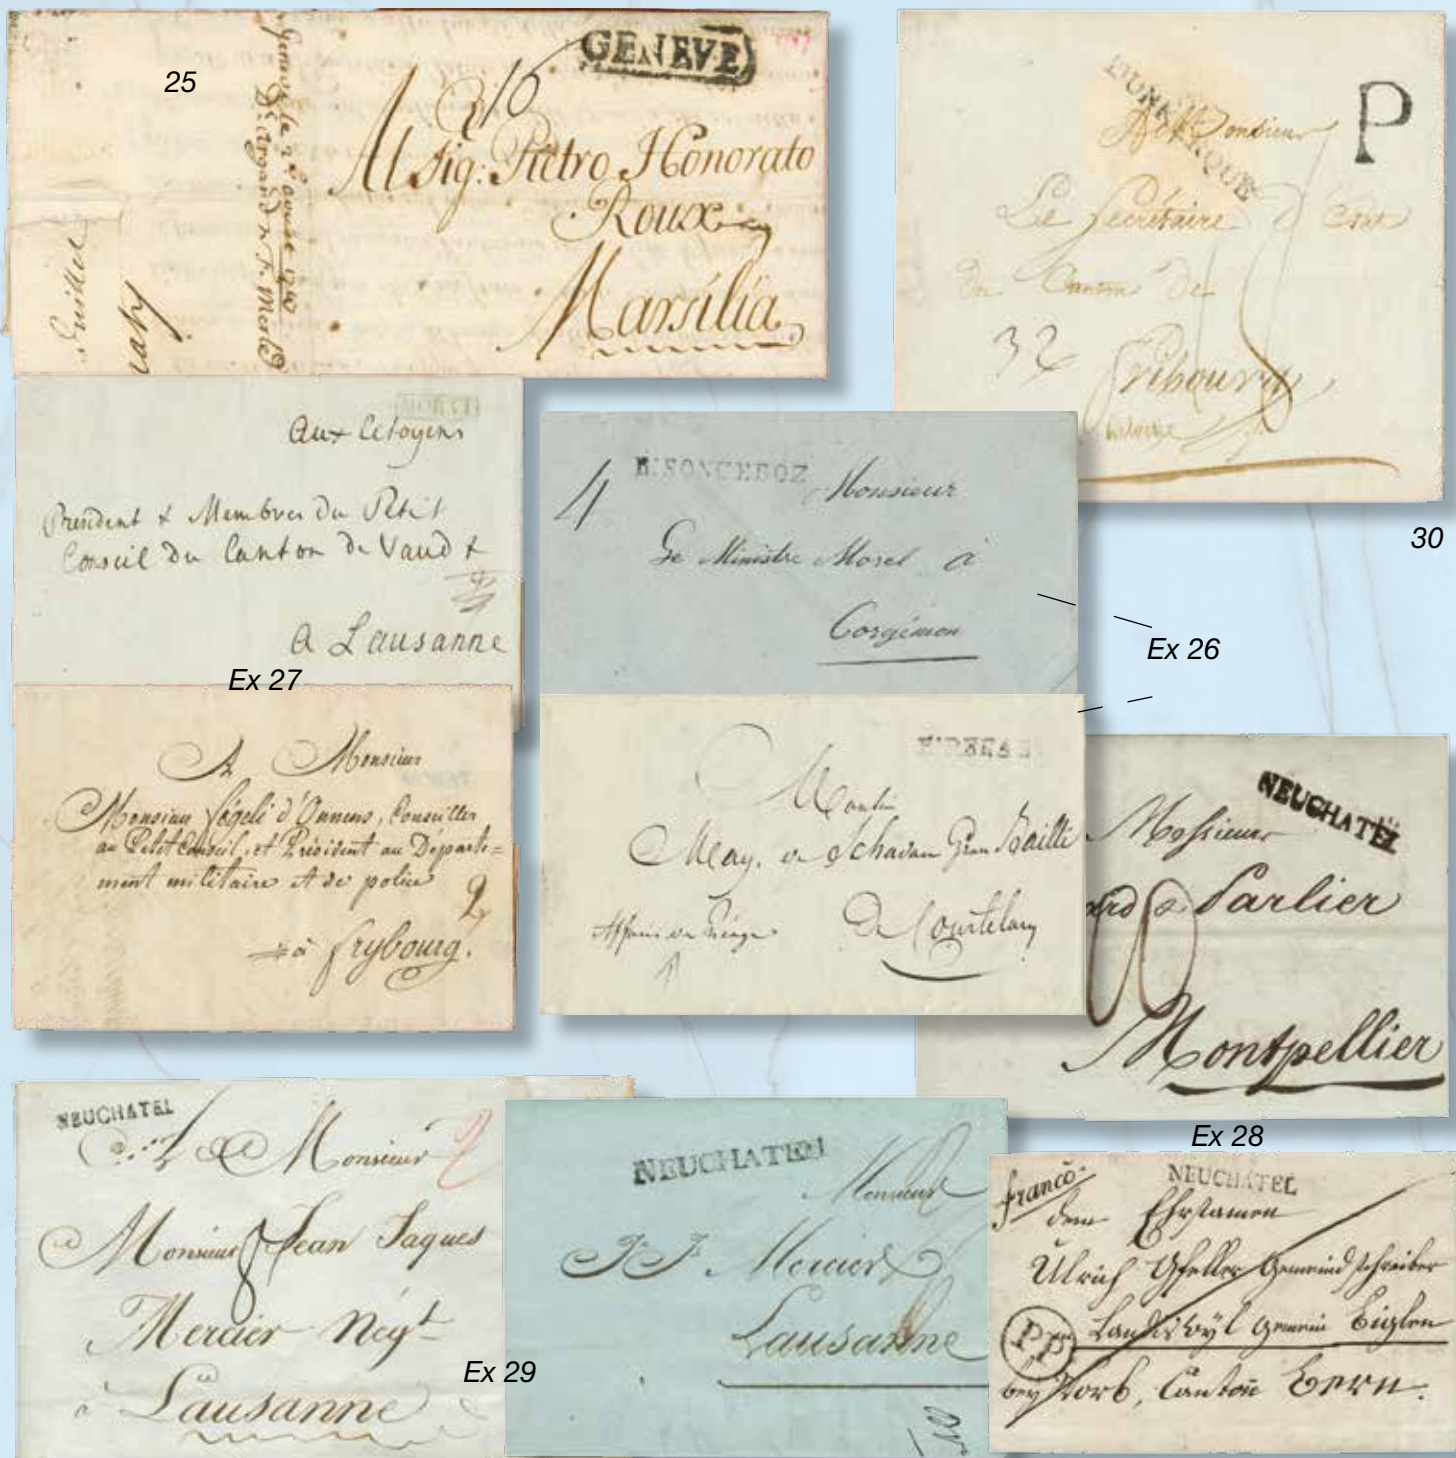 25
GENEVE
16
Al Sig: Pietro Honorato
Roux
Marsilia
Genève le
DUNKERQUE
P
A Monsieur
Le Secrétaire d'Etat
Du Canton De
32
Fribourg
30
MORAT
Aux Citoyens
President & Membres Du Petit
Conseil Du Canton De Vaud &
A Lausanne
Ex 27
B. SONCEBOZ
4
Monsieur
Le Ministre Morel à
Corgémon
Ex 26
A Monsieur
Monsieur Fégeli d'Onnens, Conseiller
au Petit Conseil, et Président au Départe=
ment militaire et de police
2
à Frybourg.
Monsieur
May, de Schadau Gran Baillif
De Courtelary
NEUCHATEL
Messieurs
Parlier
Montpellier
Ex 28
NEUCHATEL
2
A Monsieur
Monsieur Jean Jaques
8
Mercier Négt
à Lausanne
Ex 29
NEUCHATEL
Monsieur
J. J. Mercier
Lausanne
franco
NEUCHATEL
dem Ehrsamen
Ulrich Gfeller Gemeindschreiber
P.P.
Landiswyl Gemein Biglen
bey Worb, Canton Bern.